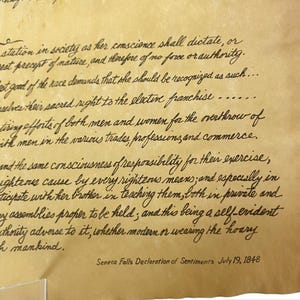 station in society as her conscience shall dictate, or
great precept of nature, and therefore of no force or authority.
good of the race demands that she should be recognized as such...
their sacred right to the elective franchise ......
efforts of both men and women for the overthrow of
with men in the various trades, professions, and commerce.
and the same consciousness of responsibility for their exercise,
righteous cause by every righteous means; and especially in
with her brother in teaching them, both in private and
any assemblies proper to be held; and this being a self-evident
authority adverse to it, whether modern or wearing the hoary
mankind.
Seneca Falls Declaration of Sentiments July 19, 1848